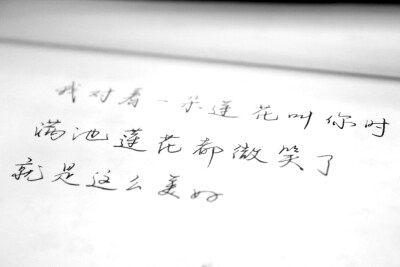 我对着一朵莲花叫你时
满池莲花都微笑了
就是这么美好